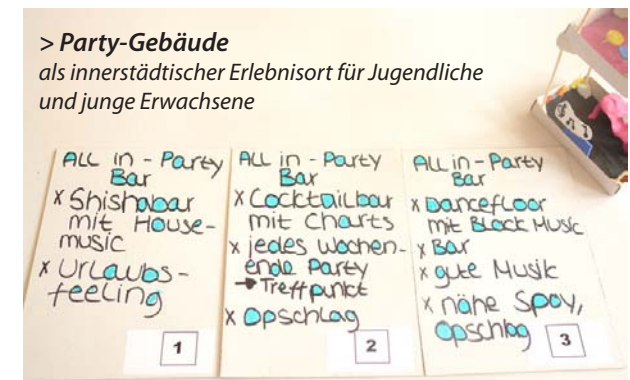 > Party-Gebäude
als innerstädtischer Erlebnisort für Jugendliche
und junge Erwachsene
ALL in - Party
Bar
x Shishabar
mit House-
music
x Urlaubs-
feeling
1
ALL in - Party
Bar
x Cocktailbar
mit Charts
x jedes Wochen-
ende Party
→ Treffpunkt
x Opschlag
2
ALL in - Party
Bar
x Dancefloor
mit Black Music
x Bar
x gute Musik
x nähe Spoy,
Opschlag
3